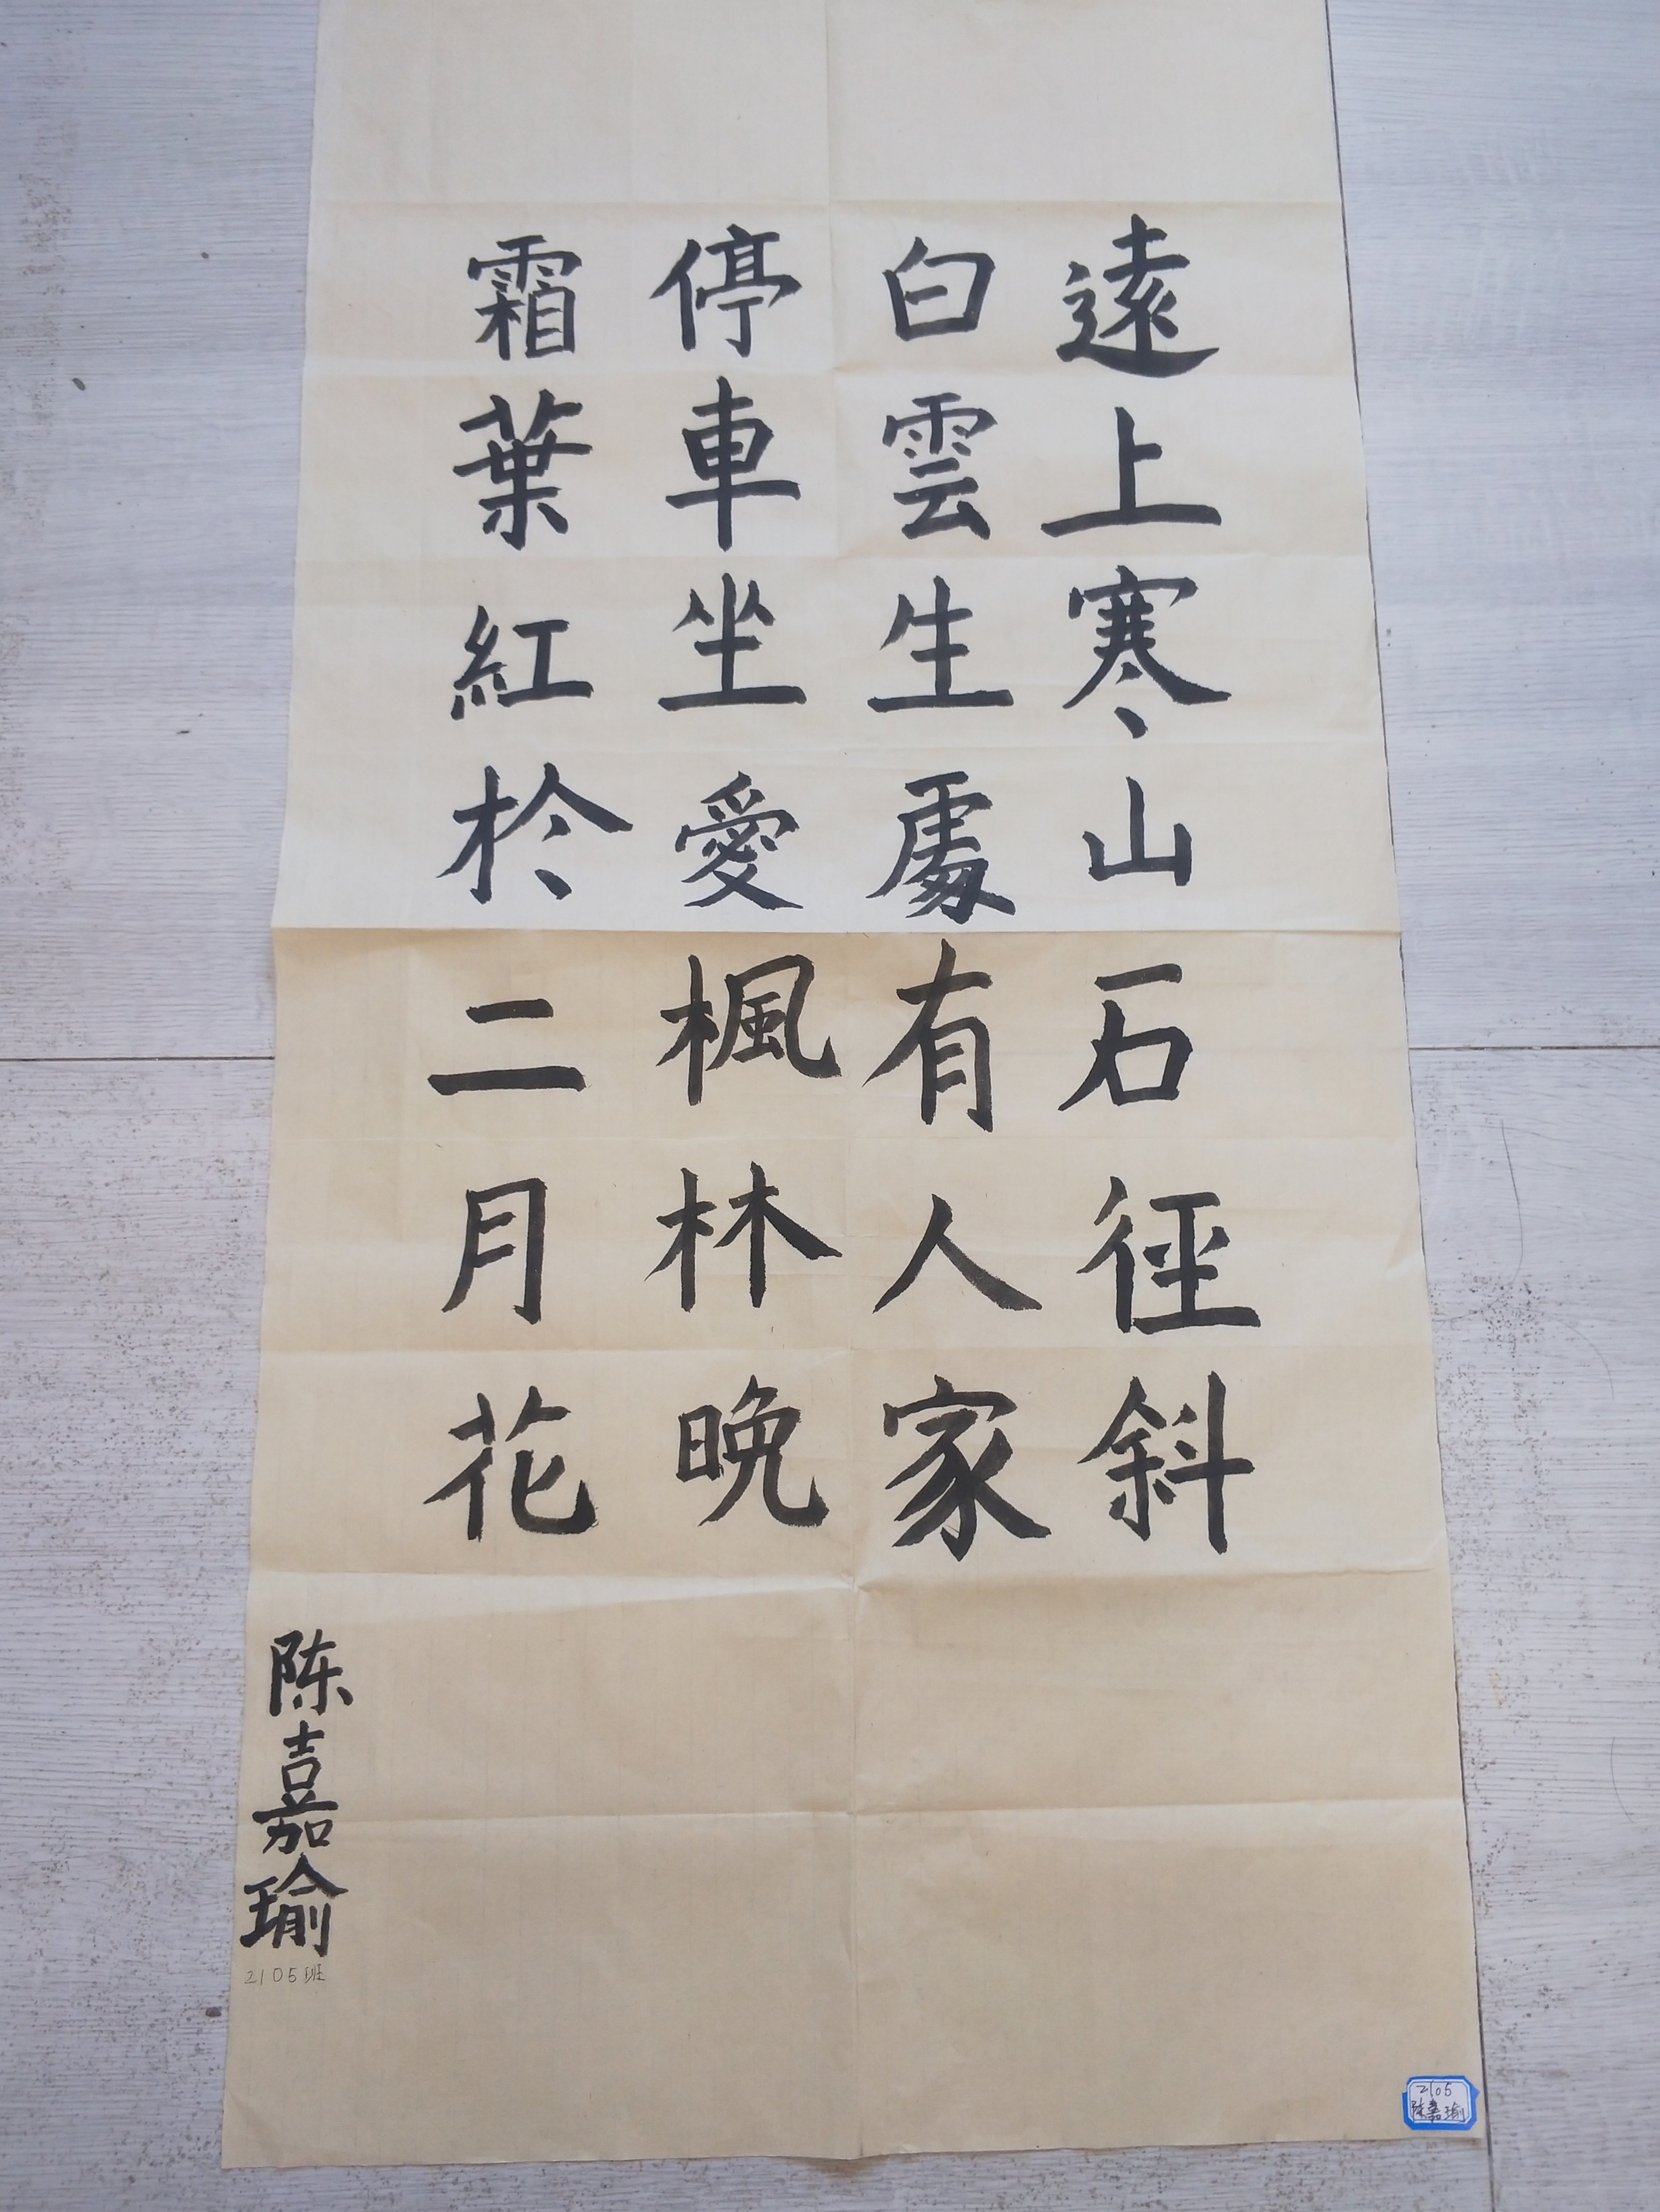 遠上寒山石徑斜
白雲生處有人家
停車坐愛楓林晚
霜葉紅於二月花
陈嘉瑜
2105班
2105
陈嘉瑜